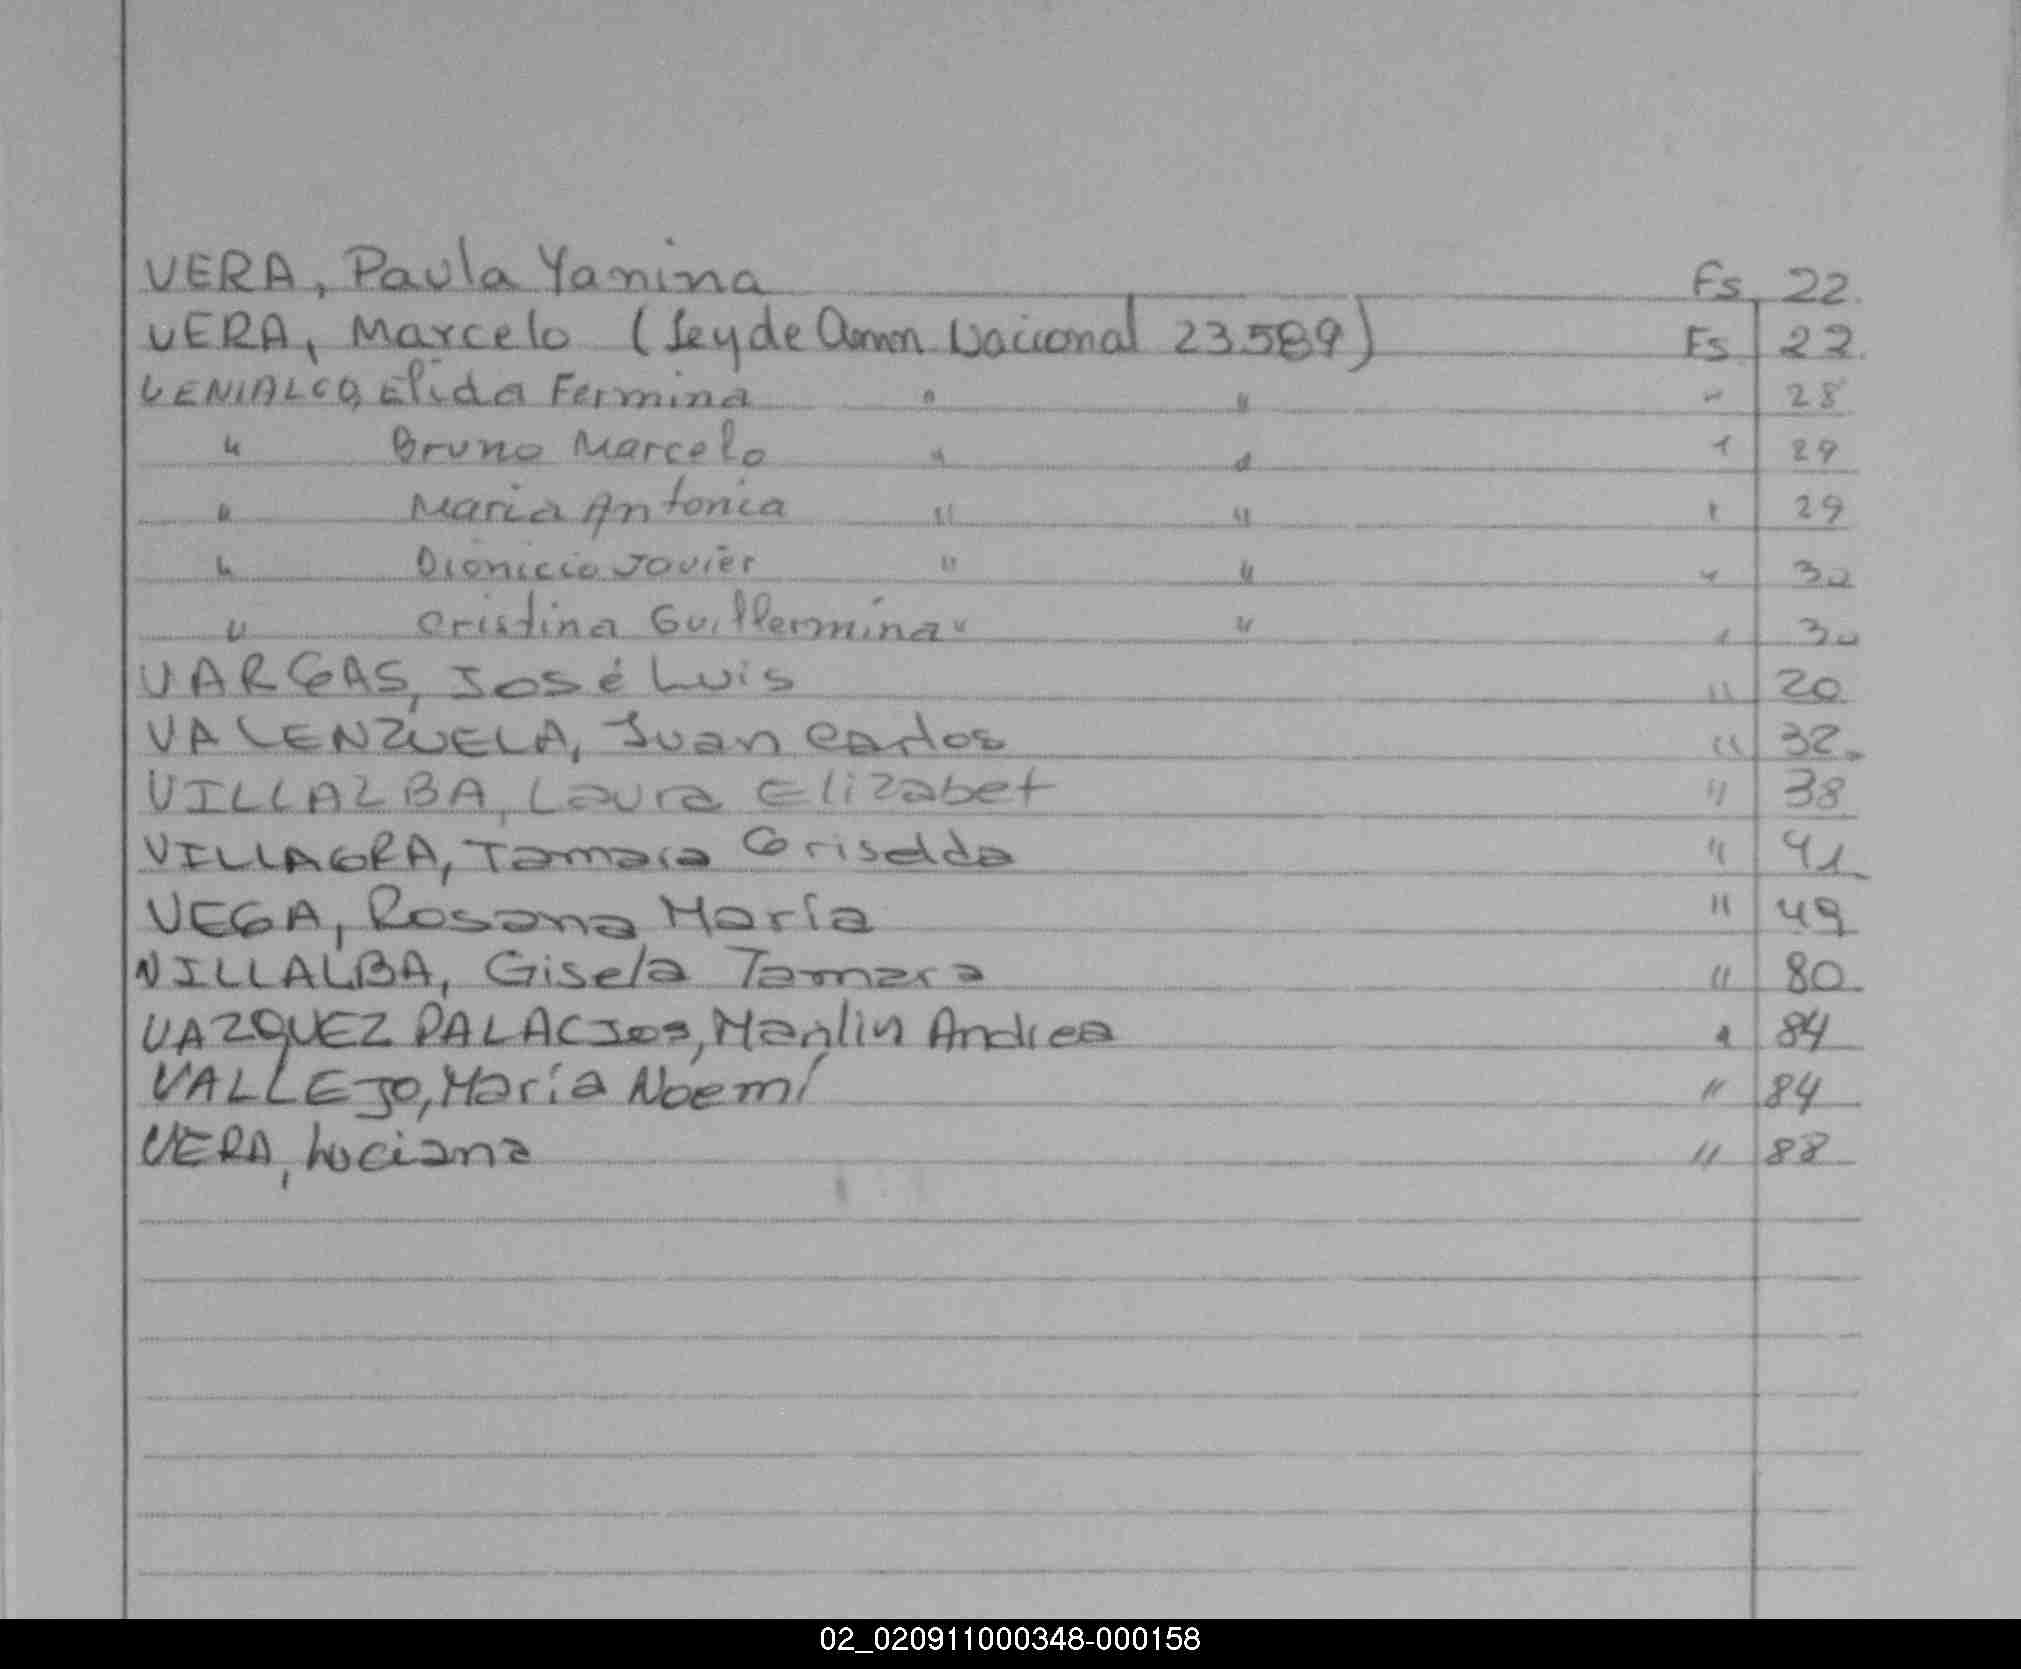 VERA, Paula Yanina Fs 22.
VERA, Marcelo (Ley de Amn Nacional 23.589) Fs 22.
VENIALGO, Elida Fermina " " " 28
" Bruno Marcelo " " " 29
" Maria Antonia " " " 29
" Dionicio Javier " " " 30
" Cristina Guillermina " " " 30
VARGAS, José Luis " 20
VALENZUELA, Juan Carlos " 32.
VILLALBA, Laura Elizabet " 38
VILLAGRA, Tamara Griselda " 41
VEGA, Rosana María " 49
VILLALBA, Gisela Tamara " 80
VAZQUEZ PALACIOS, Andrea " 84
VALLEJO, María Noemí " 84
VERA, Luciana " 88
02_020911000348-000158